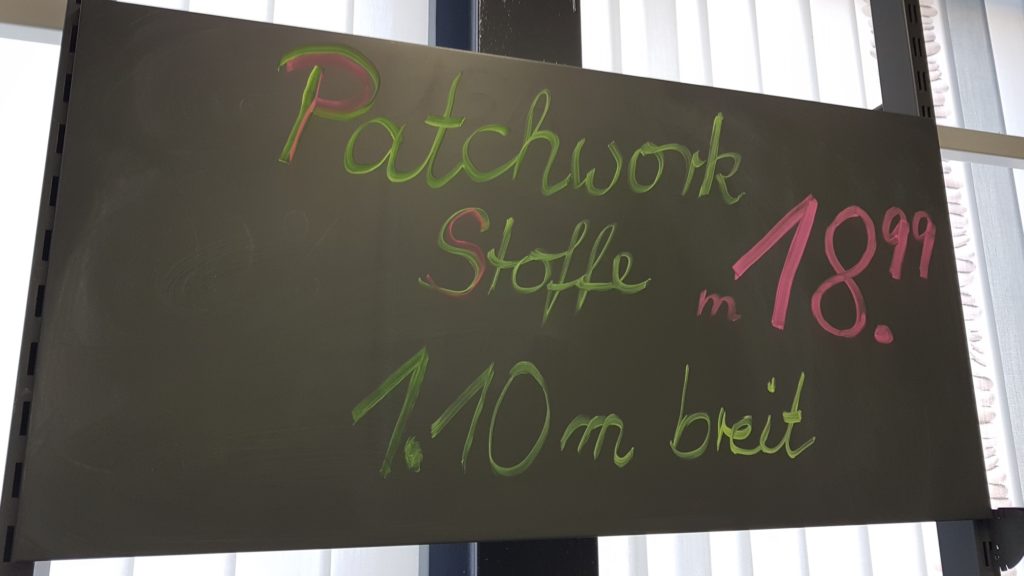 Patchwork
Stoffe
m 18.99
1.10 m breit